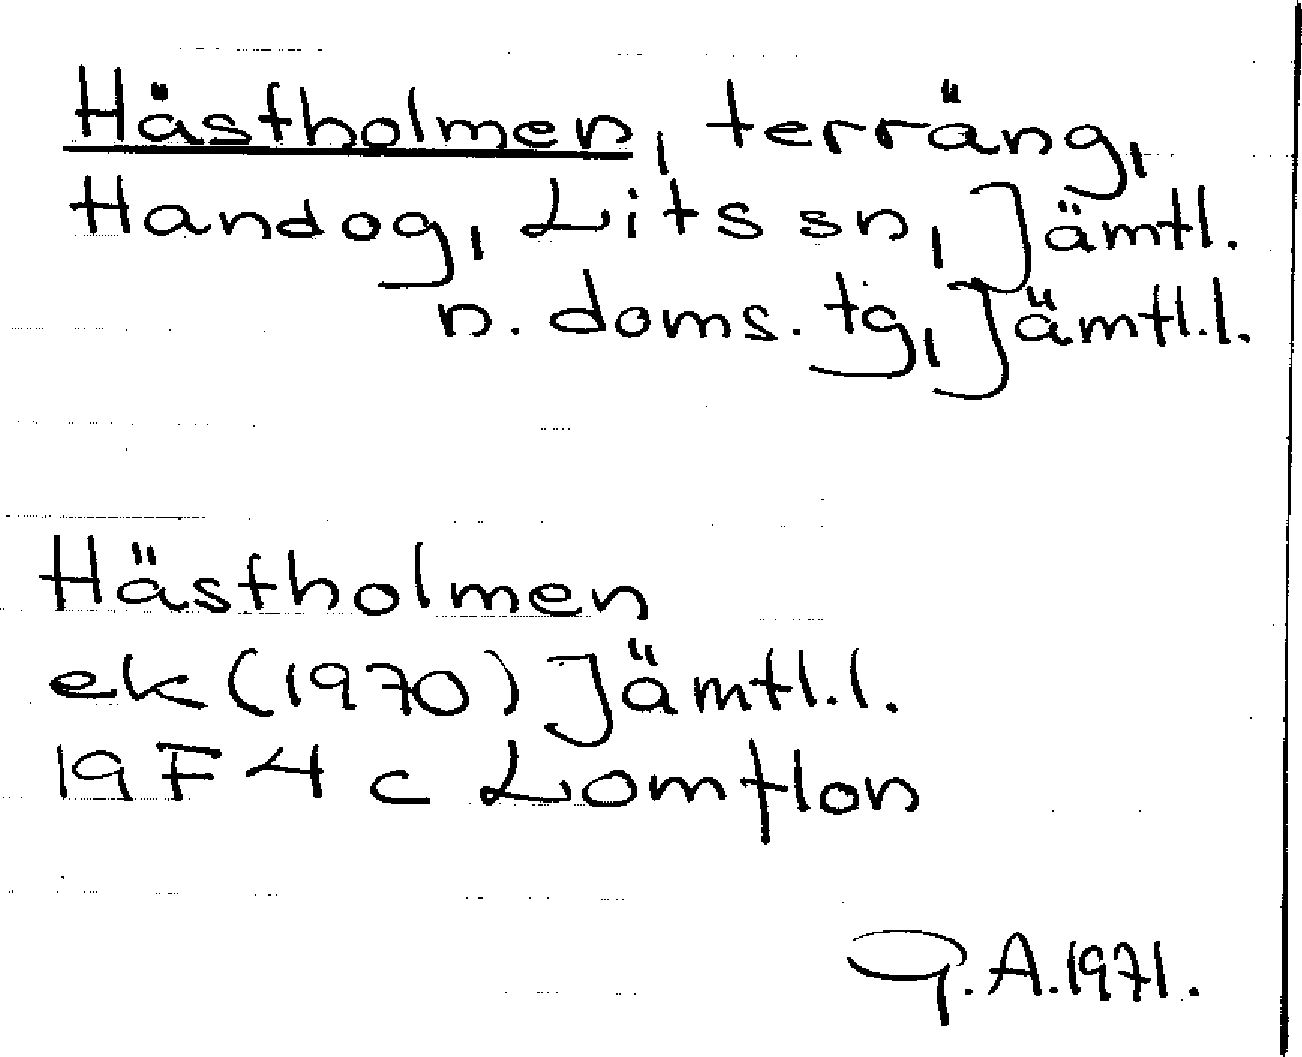 Hästholmen, terräng,
Handog, Lits sn, Jämtl.
n. doms. tg, Jämtl.l.
Hästholmen
ek (1970) Jämtl.l.
19F4c Lomflon
G.A.1971.